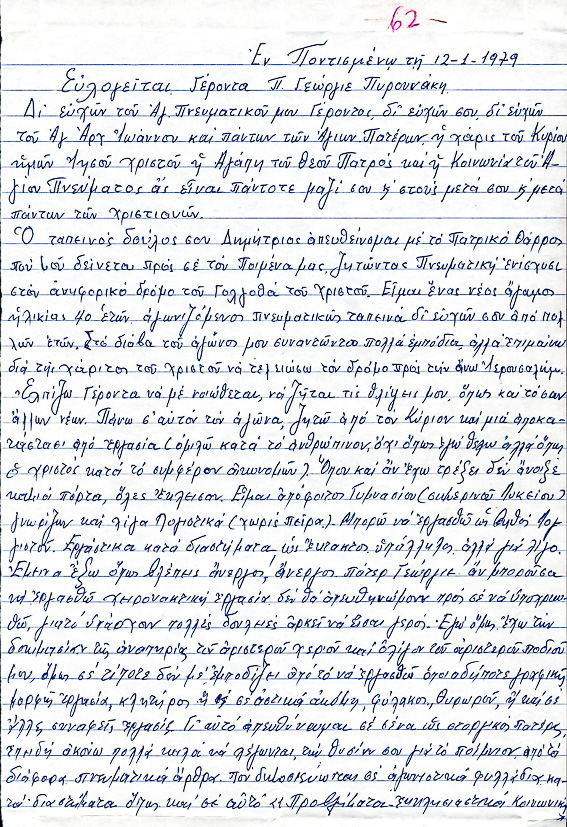 62 -
Ἐν Ποντισμένῳ τῇ 12-1-1979
Εὐλογεῖται Γέροντα Π. Γεώργιε Πυρουνάκη
Δι' εὐχῶν τοῦ Ἁγ. Πνευματικοῦ μου Γέροντος, δι' εὐχῶν σου, δι' εὐχῶν
τοῦ Ἁγ. Ἀρχ Ἰωάννου καὶ πάντων τῶν Ἁγίων Πατέρων ἡ χάρις τοῦ Κυρίου
ἡμῶν Ἰησοῦ Χριστοῦ ἡ Ἀγάπη τοῦ Θεοῦ Πατρός καὶ ἡ Κοινωνία τοῦ Ἁ-
γίου Πνεύματος ἄς εἶναι πάντοτε μαζί σου κ' στούς μετά σου κ μετά
πάντων τῶν χριστιανῶν.
Ὁ ταπεινός δοῦλος σου Δημήτριος ἀπευθείνομαι μέ τό Πατρικό θάρρος
πού σοῦ δείνεται πρός σέ τόν Ποιμένα μας, Ζητώντας Πνευματική ἐνίσχυσι
στόν ἀνηφορικό δρόμο τοῦ Γολγοθᾶ τοῦ Χριστοῦ. Εἶμαι ἕνας νέος ἄγαμος
ἡλικίας 40 ἐτῶν, ἀγωνιζόμενος πνευματικῶς ταπεινά δι' εὐχῶν σου ἀπό πολ-
λῶν ἐτῶν. Στό διάβα τοῦ ἀγῶνος μου συναντῶνται πολλά ἐμπόδια, ἀλλά ἐπιμαίνω
διά τῆς χάριτος τοῦ Χριστοῦ νά τελειώσω τόν δρόμο πρός τήν ἄνω Ἱερουσαλήμ.
Ἐλπίζω Γέροντα νά μέ νοιώθεται, νά ζῆται τίς θλίψεις μου, ὅπως καί τόσων
ἄλλων νέων. Πάνω σ' αὐτόν τόν ἀγῶνα, ζητῶ ἀπό τόν Κύριον καί μιά ἀποκα-
τάστασι ἀπό ἐργασία (ὁμιλῶ κατά τό ἀνθρώπινον, ὄχι ὅπως ἐγώ θέλω ἀλλά ὅπως
ὁ χριστός κατά τό συμφέρον οἰκονομῶν). Ὅπου καί ἄν ἔχω τρέξει δέν ἄνοιξε
καμιά πόρτα, ὅλες ἔκλεισαν. Εἶμαι ἀπόφοιτος Γυμνασίου (σημερινοῦ Λυκείου)
γνωρίζων καί λίγα Λογιστικά (χωρίς πείρα). Μπορῶ νά ἐργασθῶ ὡς βοηθός Λο-
γιστοῦ. Ἐργάστικα κατά διαστήματα ὡς ἔκτακτος ὑπάλληλος ἀλλά γιά λίγο.
Ἔμεινα ἔξω ὅπως βλέπεις ἄνεργος, ἄνεργος πάτερ Γεώργιε. ἄν μποροῦσα
νά ἐργασθῶ χειρονακτική ἐργασία, δέν θά ἀπευθηνώμουν πρός σέ νά ὑποχρεω-
θῶ, γιατί ὑπάρχουν πολλές δουλειές ἀρκεῖ νά εἶσαι γερός. Ἐγώ ὅμως ἔχω τήν
δοκιμασίαν τῆς ἀναπηρίας τοῦ ἀριστεροῦ χεριοῦ καί ὀλίγον τοῦ ἀριστεροῦ ποδιοῦ
μου, ὅμως σέ τίποτε δέν μέ ἐμποδίζει ἀπό τό νά ἐργασθῶ ὁποιαδήποτε γραφική
μορφή ἐργασία, κλητήρος ἤ σέ ἀστικά ἀκόμη, φύλακος, θυρωροῦ, ἤ καί σέ
ἄλλες συναφεῖς ἐργασίες. Γι' αὐτό ἀπευθύνωμαι σέ σένα ὡς στοργικό πατέρα,
ἐπειδή ἀκούω πολλά καλά νά λέγωνται, τήν θυσίαν σου γιά τό ποίμνιον, ἀπό τά
διάφορα πνευματικά ἄρθρα πού δημοσιεύονται σέ ἀγωνιστικά φυλλάδια κα-
τά διαστήματα ὅπως καί σέ αὐτό «Προβλήματα ἐκκλησιαστικά Κοινωνικά